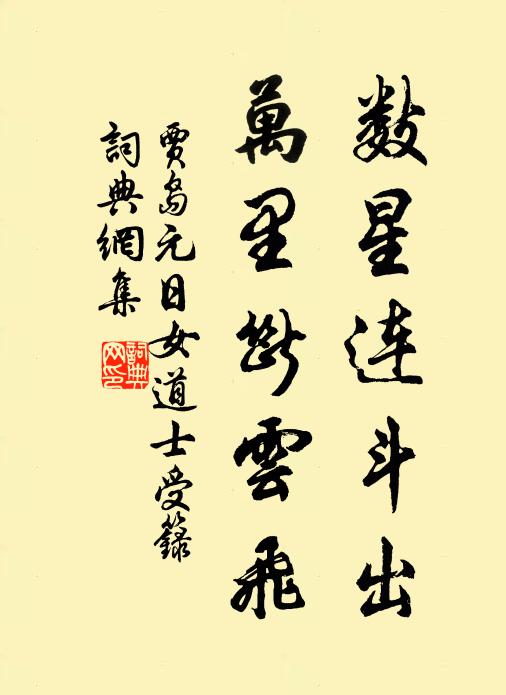 数星连斗出
萬里斷雲飛
賈島元日女道士受籙
詞典網集
詞典網印